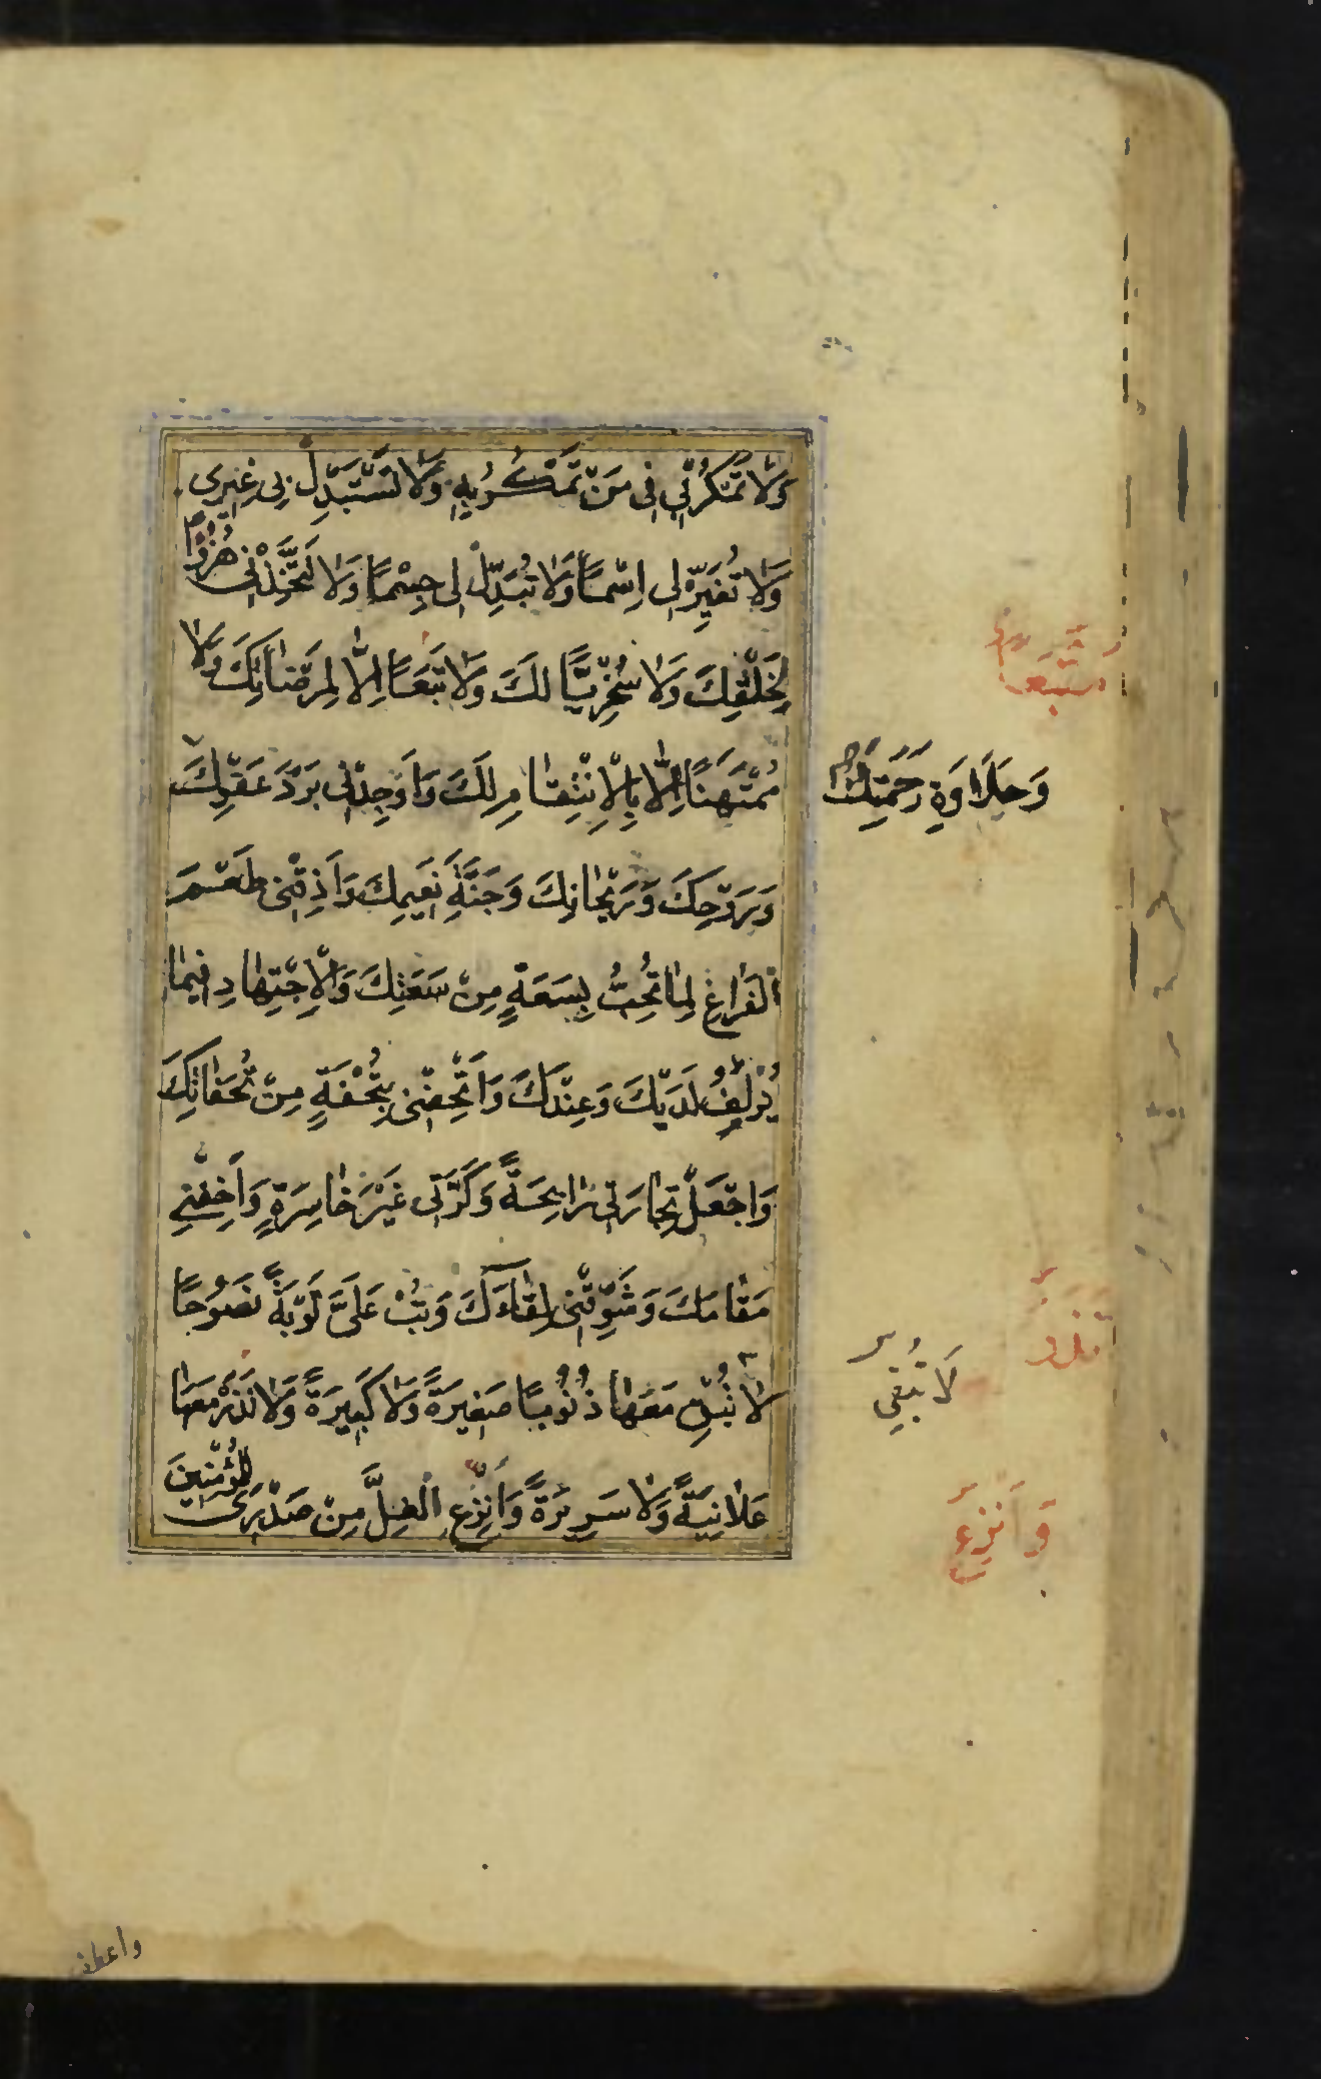 وَلَا تَمْكُرْ بِي فِي مَنْ تَمْكُرُ بِهِ وَلَا تَسْتَبْدِلْ بِي غَيْرِي
وَلَا تُغَيِّرْ لِي اِسْمًا وَلَا تُبَدِّلْ لِي جِسْمًا وَلَا تَتَّخِذْنِي هُزُوًا
لِخَلْقِكَ وَلَا سُخْرِيًّا لَكَ وَلَا تَبَعًا اِلَّا لِمَرْضَاتِكَ وَلَا
مُمْتَهَنًا اِلَّا بِالْاِنْتِقَامِ لَكَ وَاَوْجِدْنِي بَرْدَ عَفْوِكَ
وَحَلَاوَةِ رَحْمَتِكَ
وَرَوْحِكَ وَرَيْحَانِكَ وَجَنَّةِ نَعِيمِكَ وَاَذِقْنِي طَعْمَ
الْفَرَاغِ لِمَا تُحِبُّ بِسَعَةٍ مِنْ سَعَتِكَ وَالْاِجْتِهَادِ فِيمَا
يُزْلِفُ لَدَيْكَ وَعِنْدَكَ وَاَتْحِفْنِي بِتُحْفَةٍ مِنْ تُحَفَاتِكَ
وَاجْعَلْ تِجَارَتِي رَابِحَةً وَكَرَّتِي غَيْرَ خَاسِرَةٍ وَاَخِفْنِي
مَقَامَكَ وَشَوِّقْنِي لِقَاءَكَ وَتُبْ عَلَيَّ تَوْبَةً نَصُوحًا
لَا تُبْقِ مَعَهَا ذُنُوبًا صَغِيرَةً وَلَا كَبِيرَةً وَلَا تَذَرْ مَعَهَا
لَا تُبْقِي
عَلَانِيَةً وَلَا سَرِيرَةً وَانْزِعِ الْغِلَّ مِنْ صَدْرِي لِلْمُؤْمِنِينَ
وَانْزِعِ
واعطف